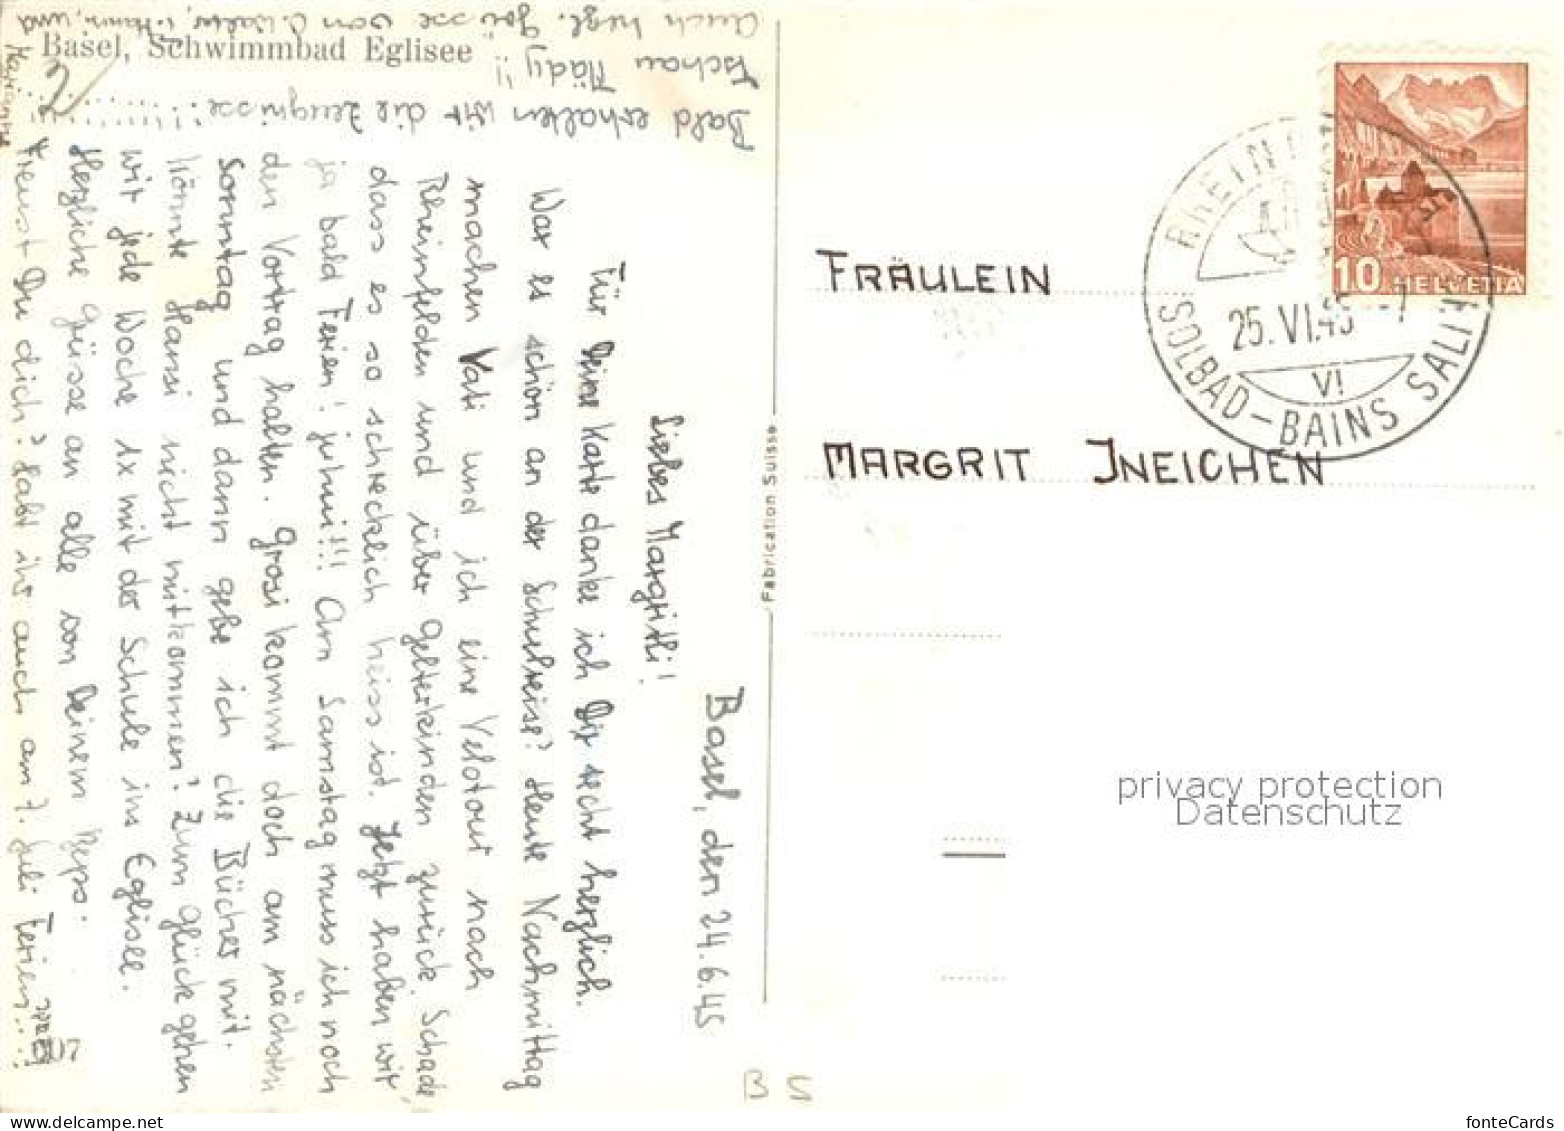 Basel, Schwimmbad Eglisee
Basel, den 24.6.45
Liebes Margritli!
Für Deine Karte danke ich Dir recht herzlich.
War es schön an der Schulreise? Heute Nachmittag
machen Vati und ich eine Velotour nach
Rheinfelden und über Gelterkinden zurück. Schade
dass es so schrecklich heiss ist. Jetzt haben wir
ja bald Ferien! juhui!!! Am Samstag muss ich noch
den Vortrag halten. Grosi kommt doch am nächsten
Sonntag und dann gebe ich die Bücher mit.
Könnte Hansi nicht mitkommen? Zum Glück gehen
wir jede Woche 1x mit der Schule ins Eglisee.
Herzliche Grüsse an alle von Deinem Beps.
Freust Du dich? Habt ihr auch am 7. Juli Ferien...!
Bald erhalten wir die Zeugnisse!
Tschau Mädy!!
Auch herzl. Grüsse von O. Walter, und
Marianne
607
Fabrication Suisse
FRÄULEIN
MARGRIT INEICHEN
10 HELVETIA
RHEIN
25.VI.45 -7
VI
SOLBAD-BAINS SALIN
privacy protection
Datenschutz
B S
www.fontecards.de
fonteCards